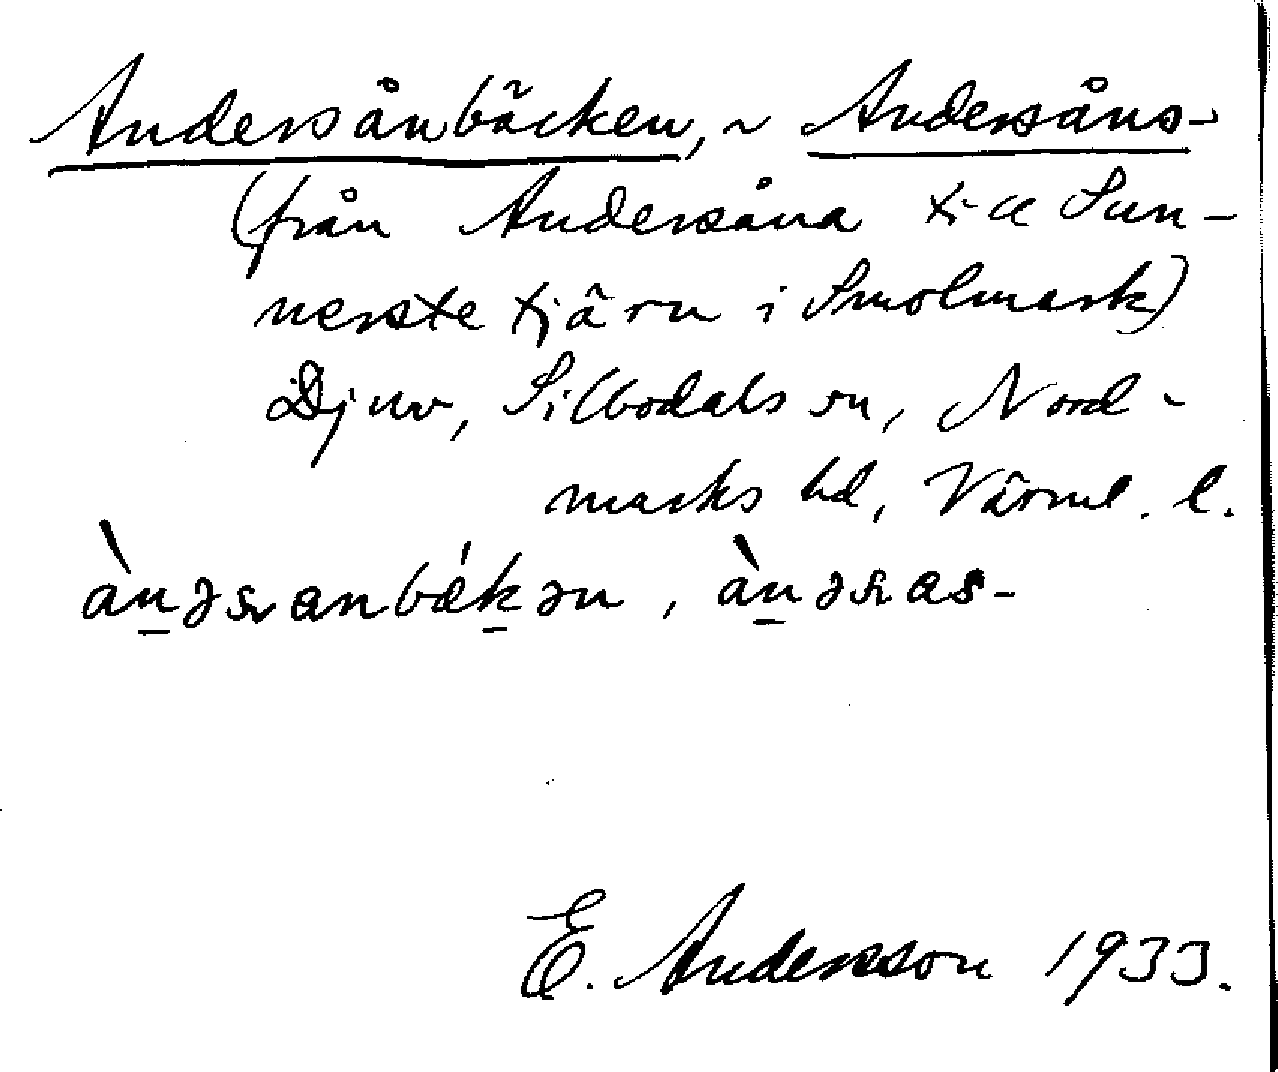 Andersånbäcken, ~ Andersåns-
(från Andersåna till Sun-
nerste tjärn i Smolmark)
Djuv, Silbodals sn, Nord-
marks hd, Värml. l.
E. Andersson 1933.